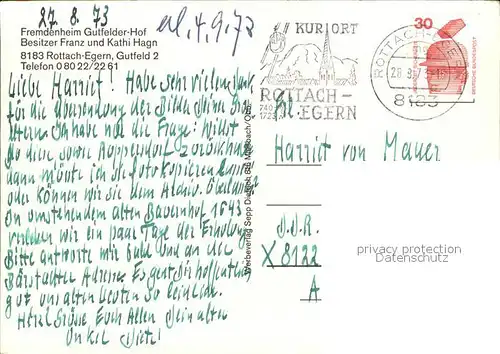 27. 8. 73
el. 4. 9. 73
Fremdenheim Gutfelder-Hof
Besitzer Franz und Kathi Hagn
8183 Rottach-Egern, Gutfeld 2
Telefon 0 80 22/22 61
Liebe Harriet! Habe sehr vielen Dank
für die Übersendung der Bilder Deiner
Eltern. Ich habe noch die Frage: Willst
Du diese, sowie Aoppersdorf zurückhaben,
dann möchte ich sie fotokopieren lassen
oder können wir sie dem Archiv
Im umstehenden alten Bauernhof 1643
verleben wir ein paar Tage der Erholung.
Bitte antworte mir bald und an der
Adresse. Es geht Dir hoffentlich
gut uns alten Leuten so leidlich.
Herzl. Grüsse Euch Allen Dein alter
Onkel Dietz!
Werbeverlag Sepp
KURORT
ROTTACH-
EGERN
ROTTACH-EGERN
8183
30
DEUTSCHE BUNDESPOST
Harriet von Mauer
D.D.R.
X 8122
A
privacy protection
Datenschutz